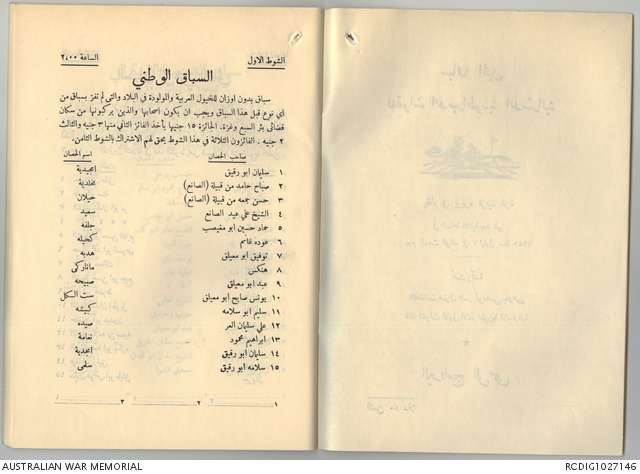 الشوط الاول الساعة ٢،٠٠
السباق الوطني
سباق بدون اوزان للخيول العربية والمولودة في البلاد والتي لم تفز بسباق من
اي نوع قبل هذا السباق ويجب ان يكون اصحابها والذين يركبونها من سكان
قضائي بئر السبع وغزة. الجائزة ١٥ جنيها يأخذ الفائز الثاني منها ٣ جنيه والثالث
٢ جنيه. الفائزون الثلاثة في هذا الشوط يحق لهم الاشتراك بالشوط الثامن.
صاحب الحصان اسم الحصان
١ سلمان ابو رقيق امجيدية
٢ صباح حامد من قبيلة (الصانع) مخلدية
٣ حسن جمعه من قبيلة (الصانع) حيلان
٤ الشيخ علي عبد الصانع سعيد
٥ حماد حسين ابو مغيصب خلفه
٦ عوده غانم كحيله
٧ توفيق ابو معيلق هدبه
٨ هنكس ماناركى
٩ عبد ابو معيلق صبيحه
١٠ يونس صابح ابو معيلق ست الكل
١١ سليم ابو سلامه كبيشه
١٢ علي سلمان العر صيده
١٣ ابراهيم محمود نعامة
١٤ سلمان ابو رقيق امجدية
١٥ سلامه ابو رقيق سلمى
١ ٢ ٣
AUSTRALIAN WAR MEMORIAL
RCDIG1027146